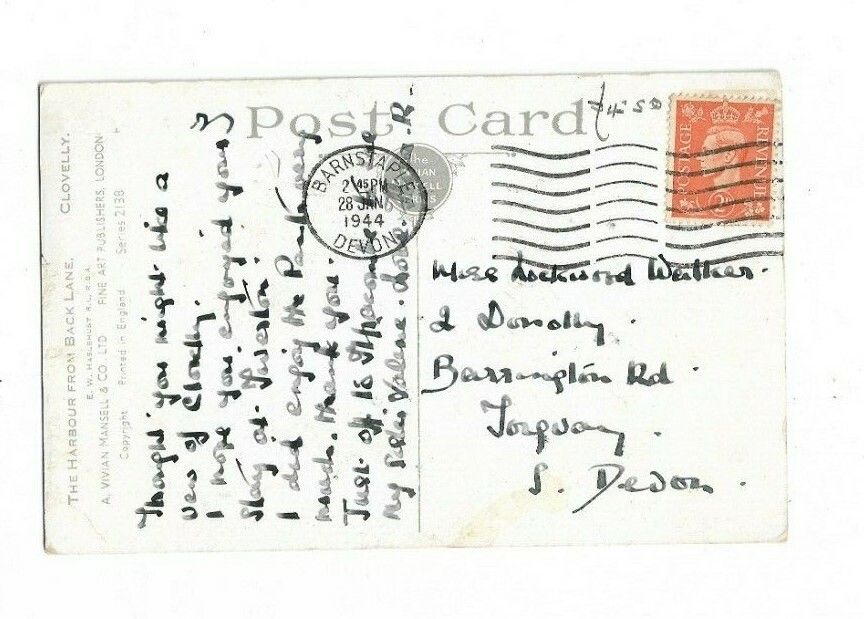 THE HARBOUR FROM BACK LANE. CLOVELLY.
E. W. HASLEHUST R.I., R.B.A.
A. VIVIAN MANSELL & CO. LTD FINE ART PUBLISHERS, LONDON
Copyright Printed in England Series 2138
Post Card
POSTAGE REVENUE
BARNSTAPLE
2 45 PM
28 JAN
1944
DEVON
Thought you might like a
view of Clovelly.
I hope you enjoyed your
stay at
I did enjoy the Panto very
much. Thank you.
Just off to Ilfracombe
my
Miss Lockwood Walker.
2 Donolly.
Barrington Rd.
Torquay.
S. Devon.